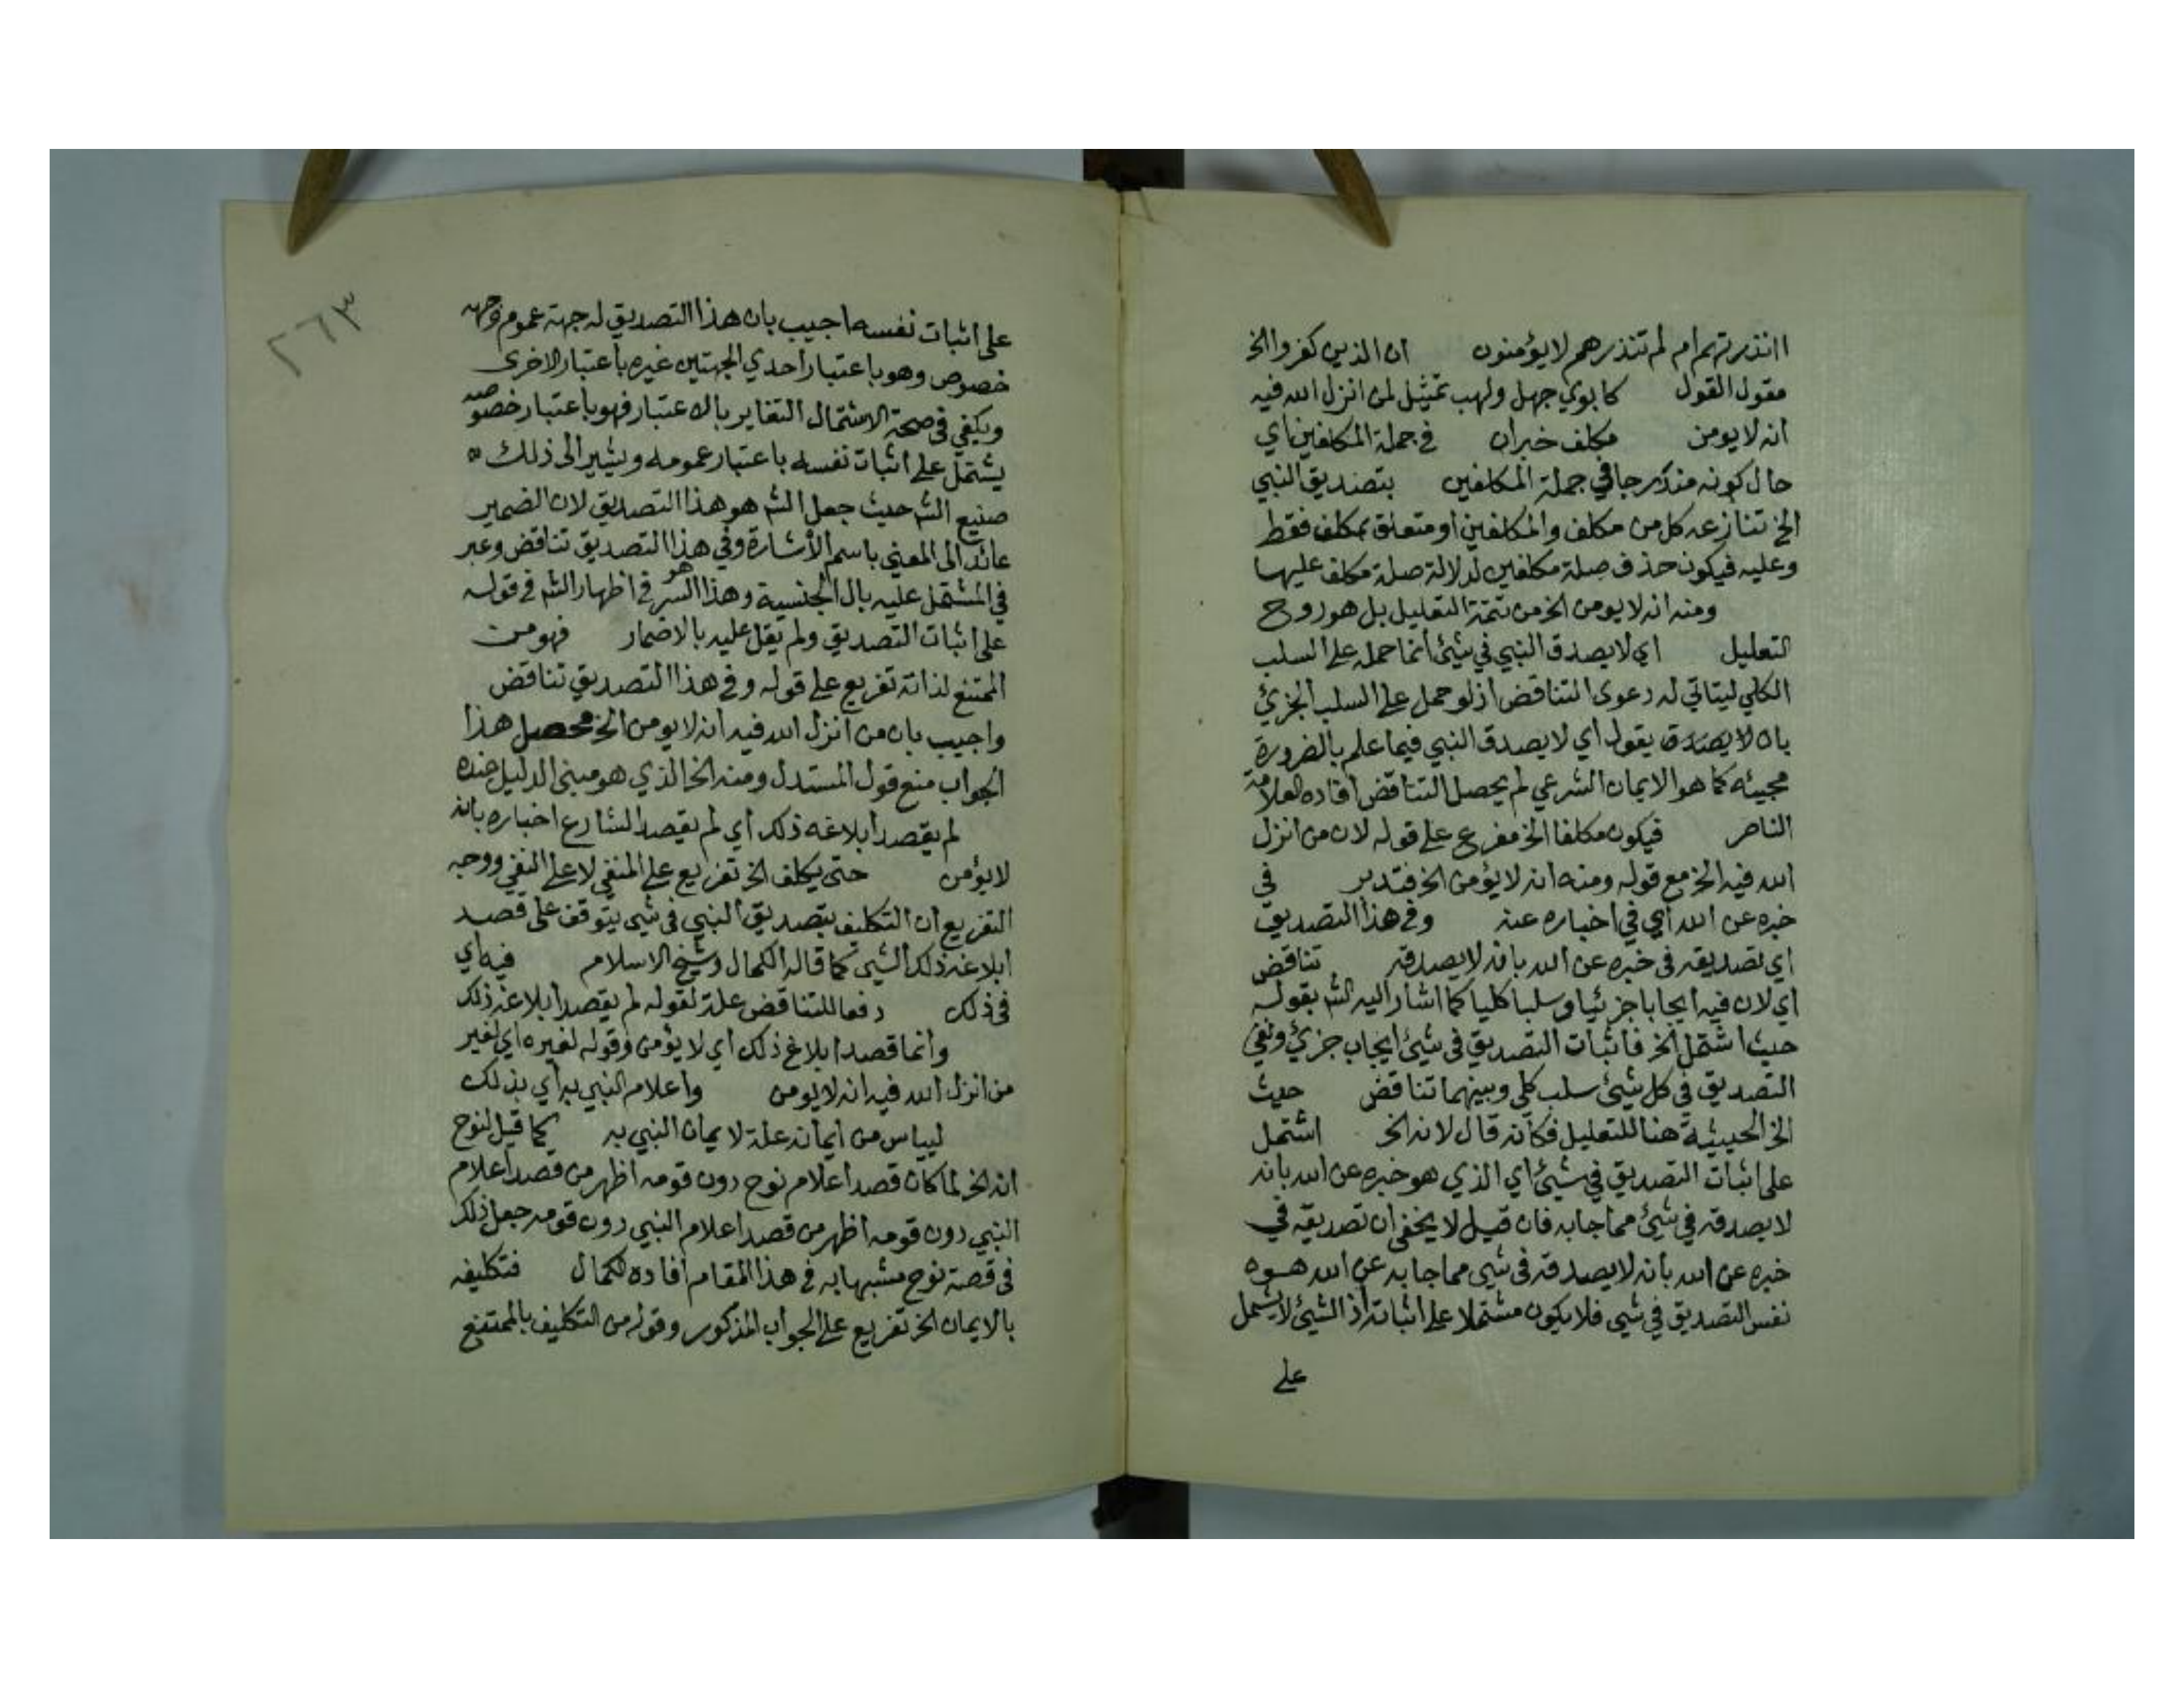 اانذرتهم ام لم تنذرهم لايؤمنون ان الذين كفروا الخ
مقول القول كابوي جهل ولهب تمثيل لمن انزل الله فيه
انه لا يومن مكلف خبران في جملة المكلفين اي
حال كونه مندرجا في جملة المكلفين بتصديق النبي
الخ تنازعه كل من مكلف والمكلفين او متعلق بمكلف فقط
وعليه فيكون حذف صلة مكلفين لدلالة صلة مكلف عليها
ومنه انه لا يومن الخ من تتمة التعليل بل هو روح
التعليل اي لا يصدق النبي في شيئ انما حمله على السلب
الكلي ليتاتي له دعوى التناقض اذ لو حمل على السلب الجزئي
بان يقول اي لا يصدق النبي فيما علم بالضرورة
مجيئه كما هو الايمان الشرعي لم يحصل التناقض افاده العلامة
الناصر فيكون مكلفا الخ مفرع على قوله لان من انزل
الله فيه الخ مع قوله ومنه انه لا يؤمن الخ فتدبر في
خبره عن الله اي في اخباره عنه وفي هذا التصديق
اي تصديقه في خبره عن الله بانه لا يصدقه تناقض
اي لان فيه ايجابا جزئيا وسلبا كليا كما اشار اليه الشه بقوله
حيث اشتمل الخ فاثبات التصديق في شيئ ايجاب جزئي ونفي
التصديق في كل شيئ سلب كلي وبينهما تناقض حيث
الخ الحيثية هنا للتعليل فكانه قال لانه الخ اشتمل
على اثبات التصديق في شيئ اي الذي هو خبره عن الله بانه
لا يصدقه في شيئ مما جا به فان قيل لا يخفى ان تصديقه في
خبره عن الله بانه لا يصدقه في شيى مما جا به عن الله هو
نفس التصديق في شيى فلا يكون مشتملا على اثباته اذ الشيئ لا يشتمل
على
٢٦٣
على اثبات نفسه اجيب بان هذا التصديق له جهة عموم وجهة
خصوص وهو باعتبار احدي الجهتين غيره باعتبار الاخرى
ويكفي في صحة الاشتمال التغاير بالاعتبار فهو باعتبار خصوصه
يشتمل على اثبات نفسه باعتبار عمومه ويشير الى ذلك
صنيع الشه حيث جعل الشه هو هذا التصديق لان الضمير
عائد الى المعني باسم الاشارة وفي هذا التصديق تناقض وعبر
في المشتمل عليه بال الجنسية وهذا هو السر في اظهار الشه في قوله
على اثبات التصديق ولم يقل عليه بالاضمار فهو من
الممتنع لذاته تفريع على قوله وفي هذا التصديق تناقض
واجيب بان من انزل الله فيه انه لا يومن الخ محصل هذا
الجواب منع قول المستدل ومنه الخ الذي هو مبنى الدليل عنده
لم يقصد ابلاغه ذلك اي لم يقصد الشارع اخباره بانه
لايؤمن حتى يكلف الخ تفريع على المنفي لا على النفي ووجه
التفريع ان التكليف بتصديق النبي في شيى يتوقف على قصد
ابلاغه ذلك الشيى كما قاله الكمال وشيخ الاسلام فيه اي
في ذلك دفعا للتناقض علة لقوله لم يقصد ابلاغه ذلك
وانما قصد ابلاغ ذلك اي لا يؤمن وقوله لغيره اي لغير
من انزل الله فيه انه لا يومن واعلام النبي به اي بذلك
ليياس من ايمانه علة لايمان النبي به كما قيل لنوح
انه الخ لما كان قصد اعلام نوح دون قومه اظهر من قصد اعلام
النبي دون قومه اظهر من قصد اعلام النبي دون قومه جعل ذلك
في قصة نوح مشبها به في هذا المقام افاده الكمال فتكليفه
بالايمان الخ تفريع على الجواب المذكور وقوله من التكليف بالممتنع